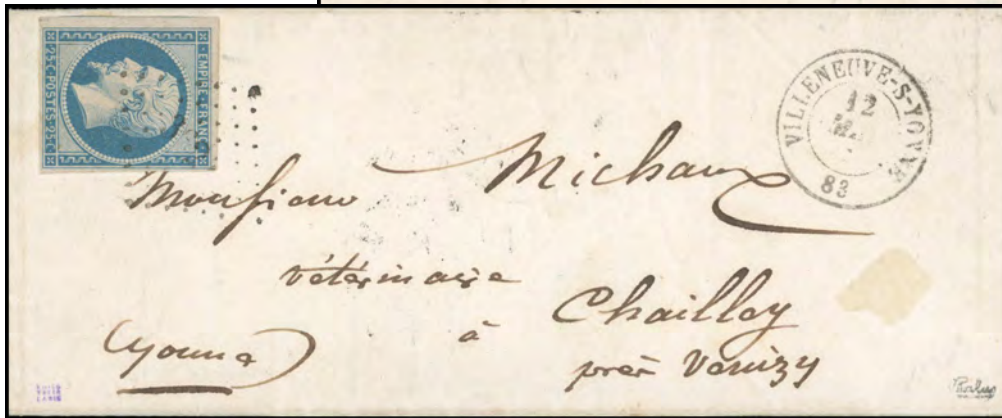 EMPIRE-FRANC-
25-C-POSTES-25-C-
VILLENEUVE-S-YONNE
12
83
Monsieur Michaux
vétérinaire
à Chailley
près Venizy
(Yonne)